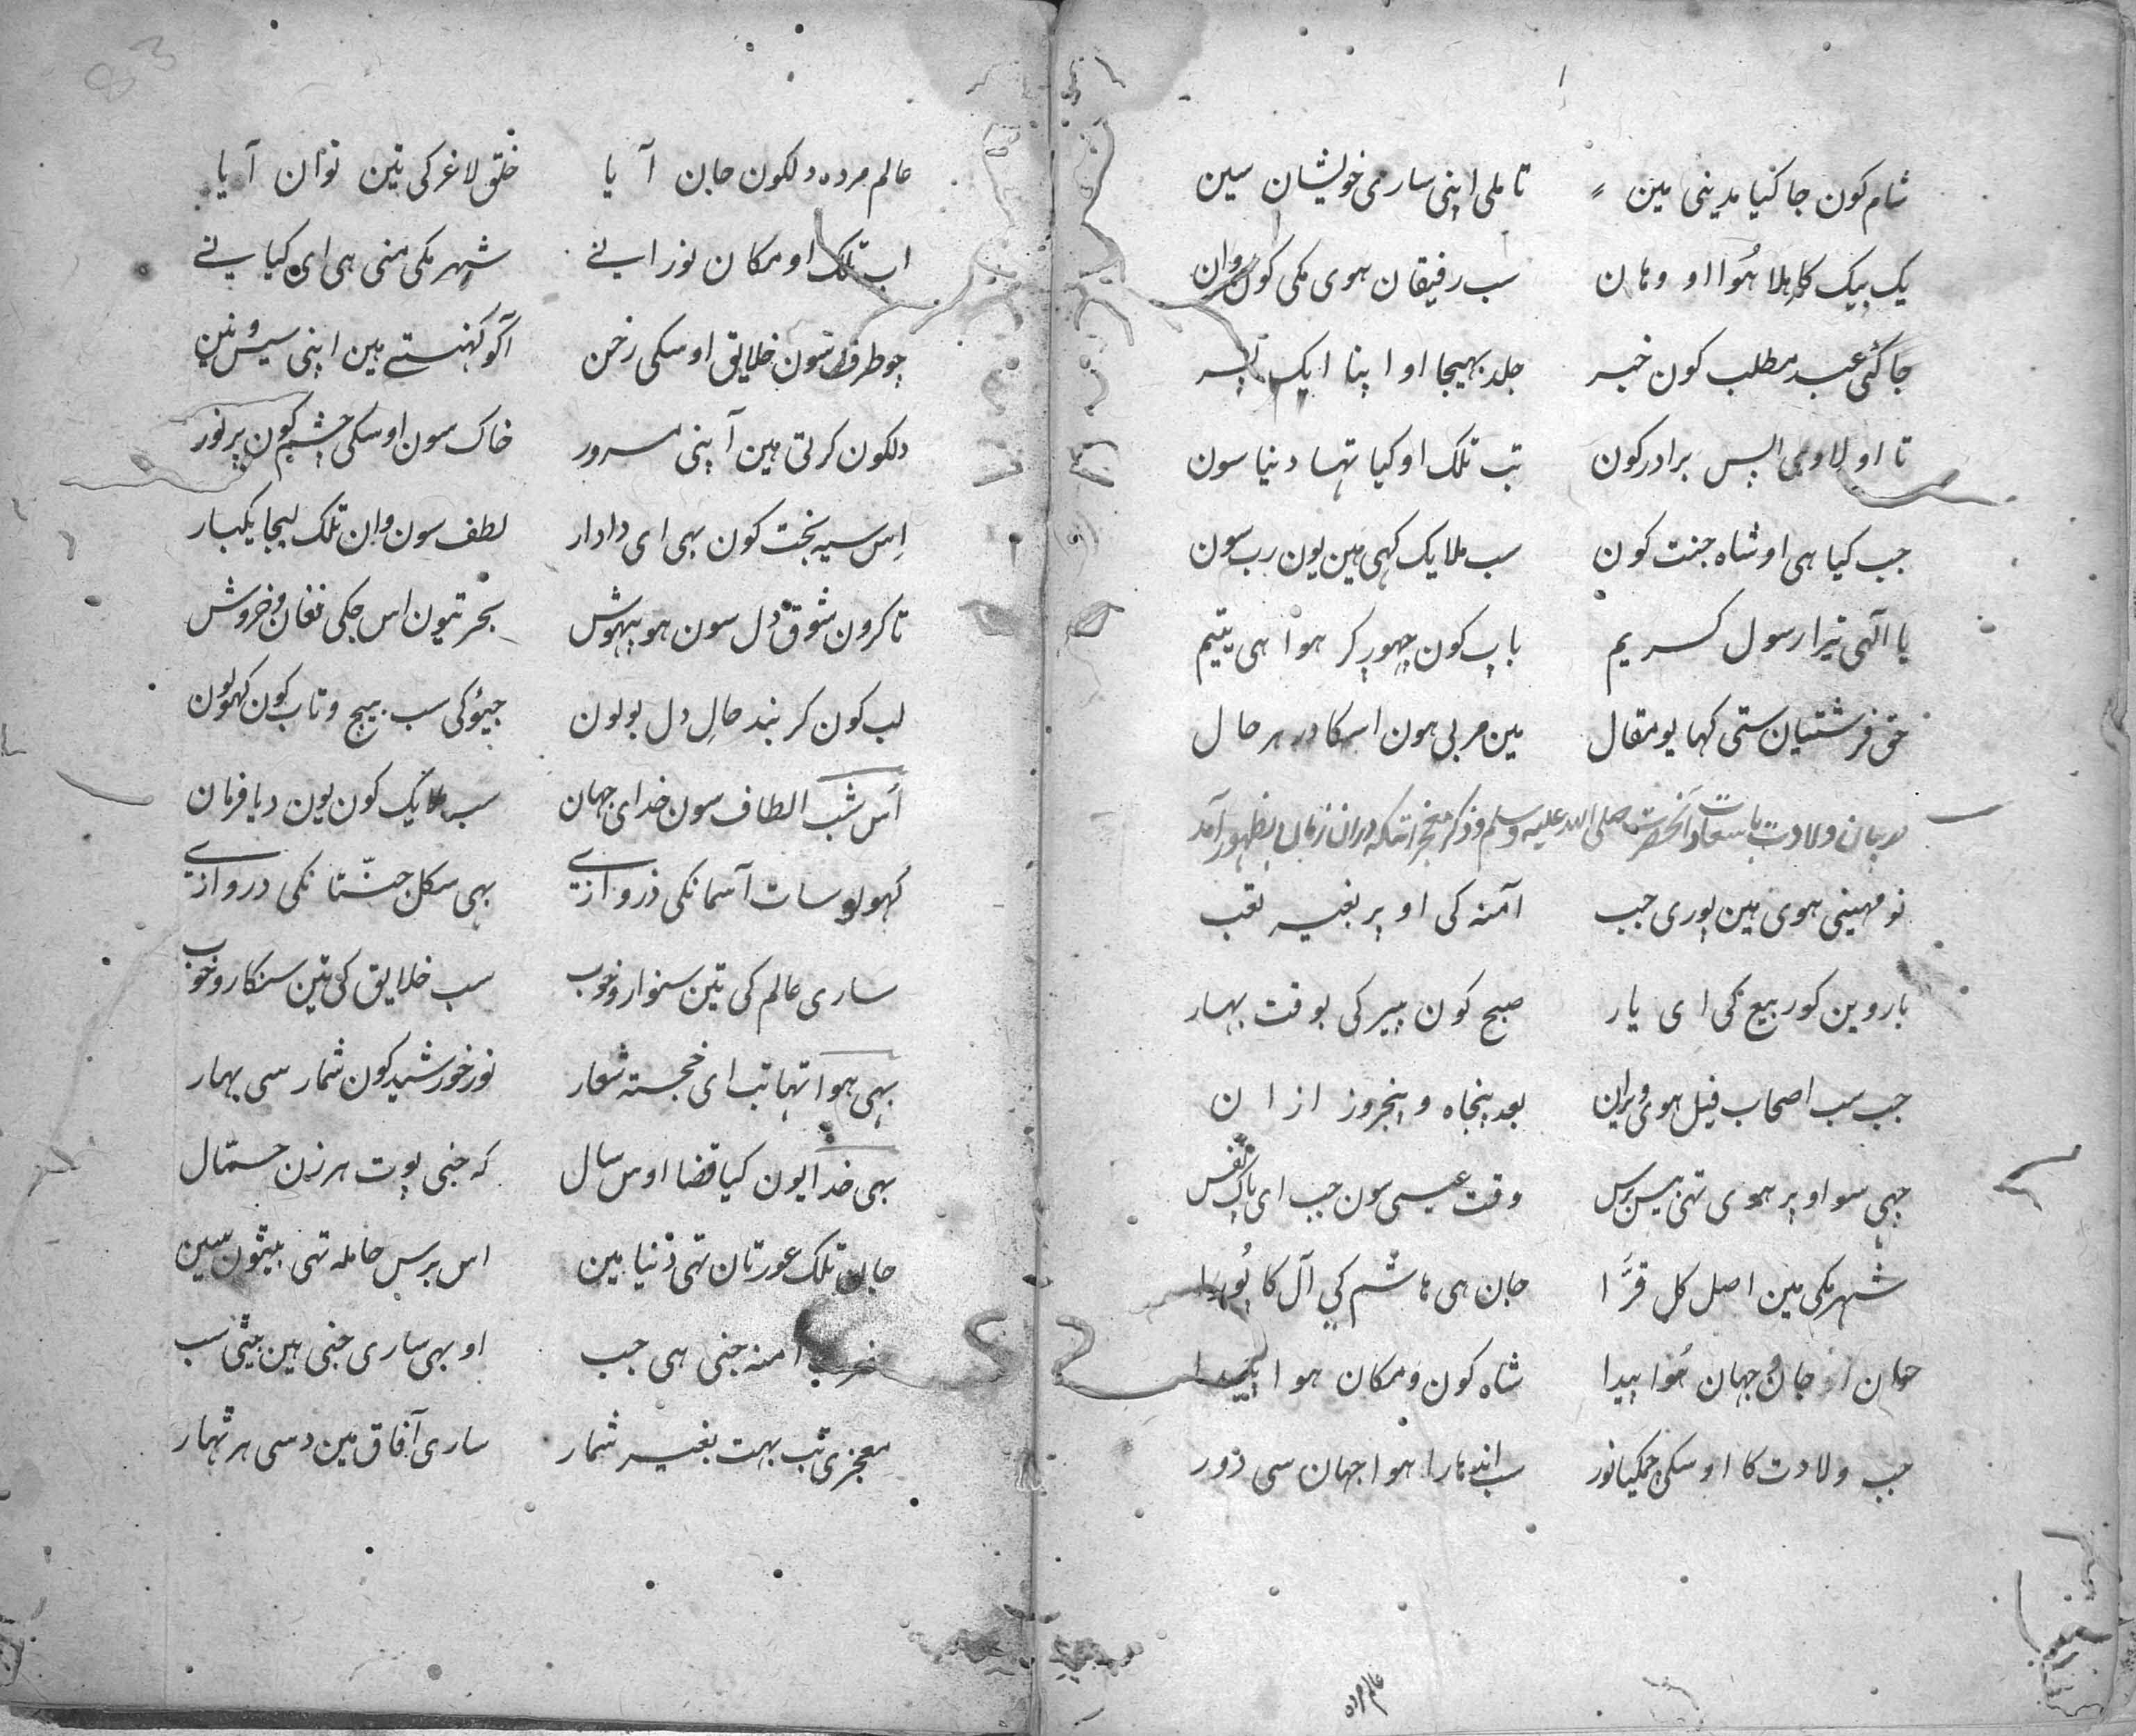 شام کون جا کیا مدینی مین تا ملی اپنی ساری خویشان سین
یک بیک کاہلا ہُوا او وہان سب رفیقان ہوی مکی کون روان
جا کئی عبد مطلب کون خبر جلد بہیجا او اپنا ایک پسر
تا او لاوی اپس برادر کون تب تلک او کیا تہا دنیا سون
جب کیا ہی او شاہ جنت کون سب ملایک کہی ہین یون رب سون
یا الٰہی تیرا رسول کریم باپ کون چہور کر ہوا ہی یتیم
حق فرشتیان ستی کہا یو مقال مین مربی ہون اسکا در ہر حال
در بیان ولادت باسعادت آنحضرت صلی الله علیه وسلم و ذکر معجزاتیکه دران زمان بظهور آمد
نو مہینی ہوی ہین پوری جب آمنہ کی اوپر بغیر تعب
باروین کو ربیع کی ای یار صبح کون پیر کی بوقت بہار
جب سب اصحاب فیل ہوی ویران بعد پنجاہ و پنجروز ازان
چہی سو اوپر ہوی تہی بیس برس وقت عیسی سون جب ای پاک نفس
شہر مکی مین اصل کل قرا جان ہی ہاشم کی آل کا
جان جہان ہُوا پیدا شاہ کون و مکان ہوا پیدا
جب ولادت کا اوسکی چمکیا نور سب اندہارا ہوا جہان سی دور
عالم مردہ
عالم مردہ دلکون جان آیا خلق لاغر کی تین توان آیا
اب تلک او مکان نورانے شہر مکی منی ہی ای کیانے
چوطرف سون خلایق اوسکی زخن آکو کہنستے ہین اپنی سیس و نین
دلکون کرتی ہین آپنی مسرور خاک سون اوسکی چشم کون پرنور
اِس سیہ بخت کون بہی ای دادار لطف سون وان تلک لیجا یکبار
تا کرون شوق دل سون ہو بیہوش بحر تیون اس جکی فغان و خروش
لب کون کر بند حالِ دل بولون جیو کی سب پیچ و تاب کون کہولون
اُس شب الطاف سون خدای جہان سب ملایک کون یون دیا فرمان
کہولو سات آسمانکی دروازے بہی سکل جنّتانکی دروازے
ساری عالم کی تین سنوارو خوب سب خلایق کی تین سنکارو خوب
بہی ہوا تہا تب ای خجستہ شعار نور خورشید کون شمار سی بہار
بہی خدا یون کیا قضا اوس سال کہ جنی پوت ہر زن حمّال
جان تلک عورتان تہی دنیا مین اس برس حاملہ تہی بیتون سین
آمنہ جنی ہی جب او بہی ساری جنی ہین بیتی سب
معجزی تب بہت بغیر شمار ساری آفاق مین دسی ہر تہار